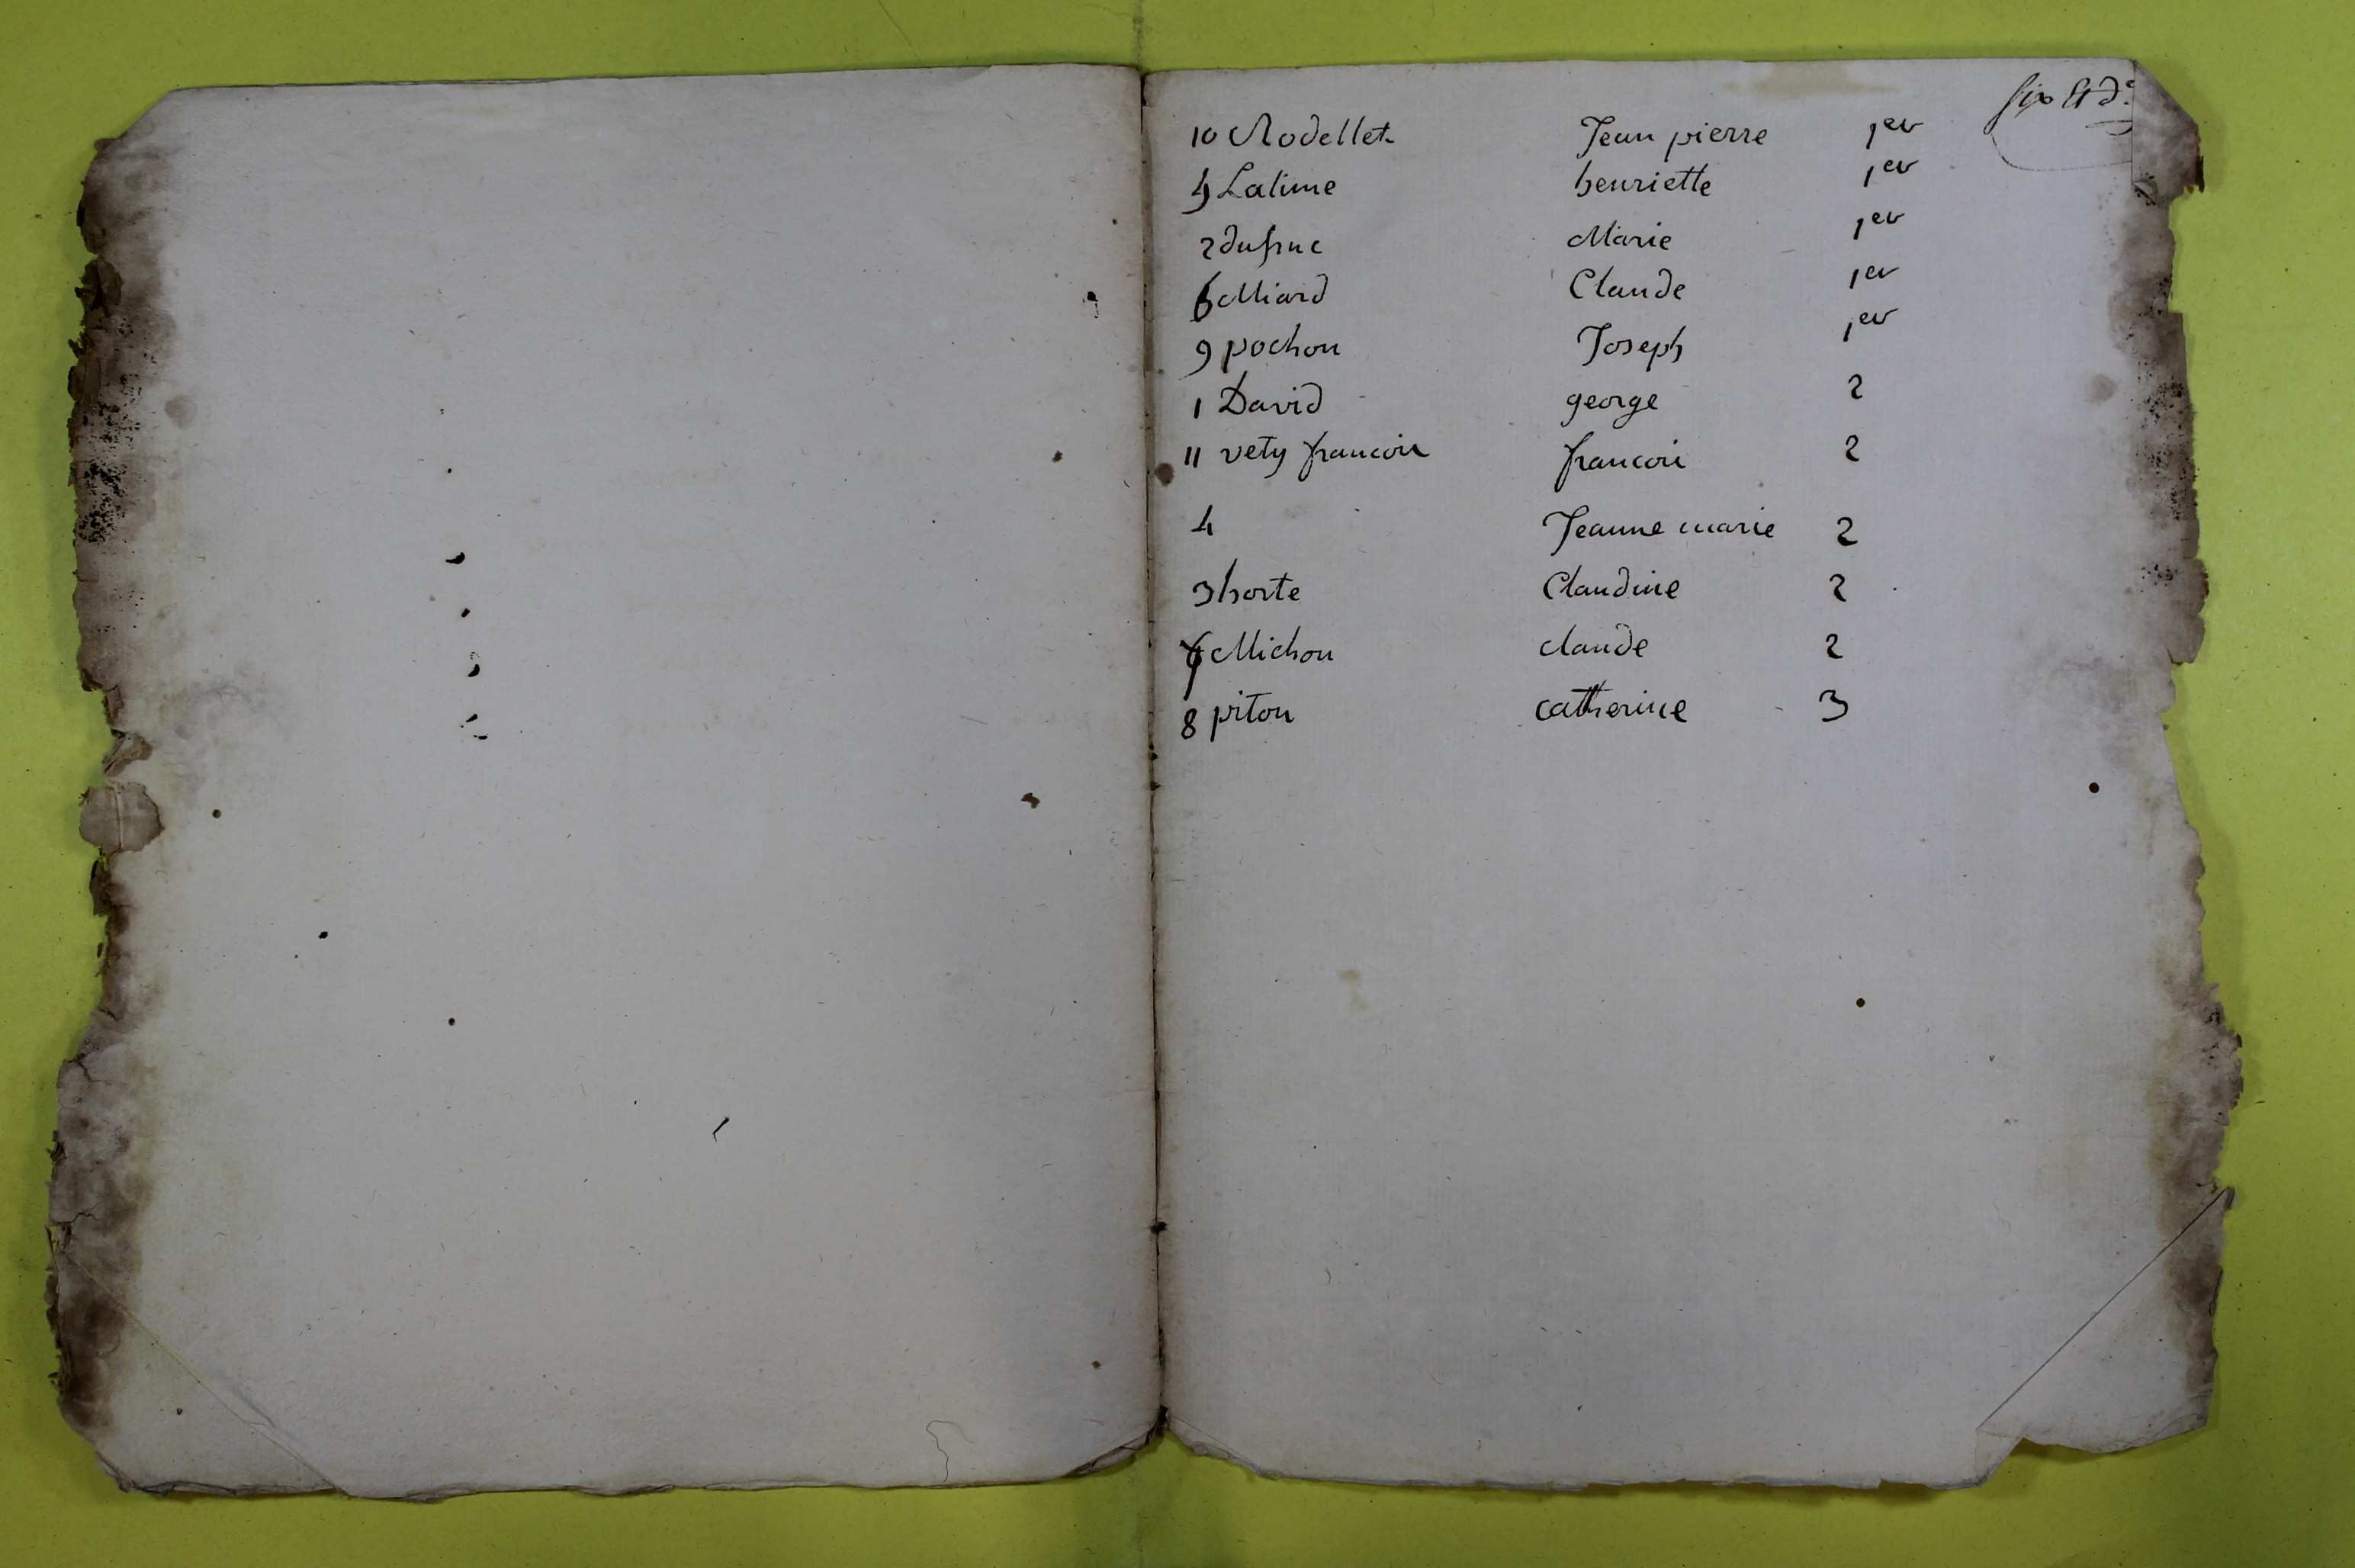 six et d.
10 Rodellet Jean pierre 1er
5 Lalime henriette 1er
2 dufruc Marie 1er
6 Miard Claude 1er
9 pochon Joseph 1er
1 David george 2
11 vety francois francois 2
4 Jeanne marie 2
3 horte Claudine 2
7 Michon claude 2
8 piton catherine 3